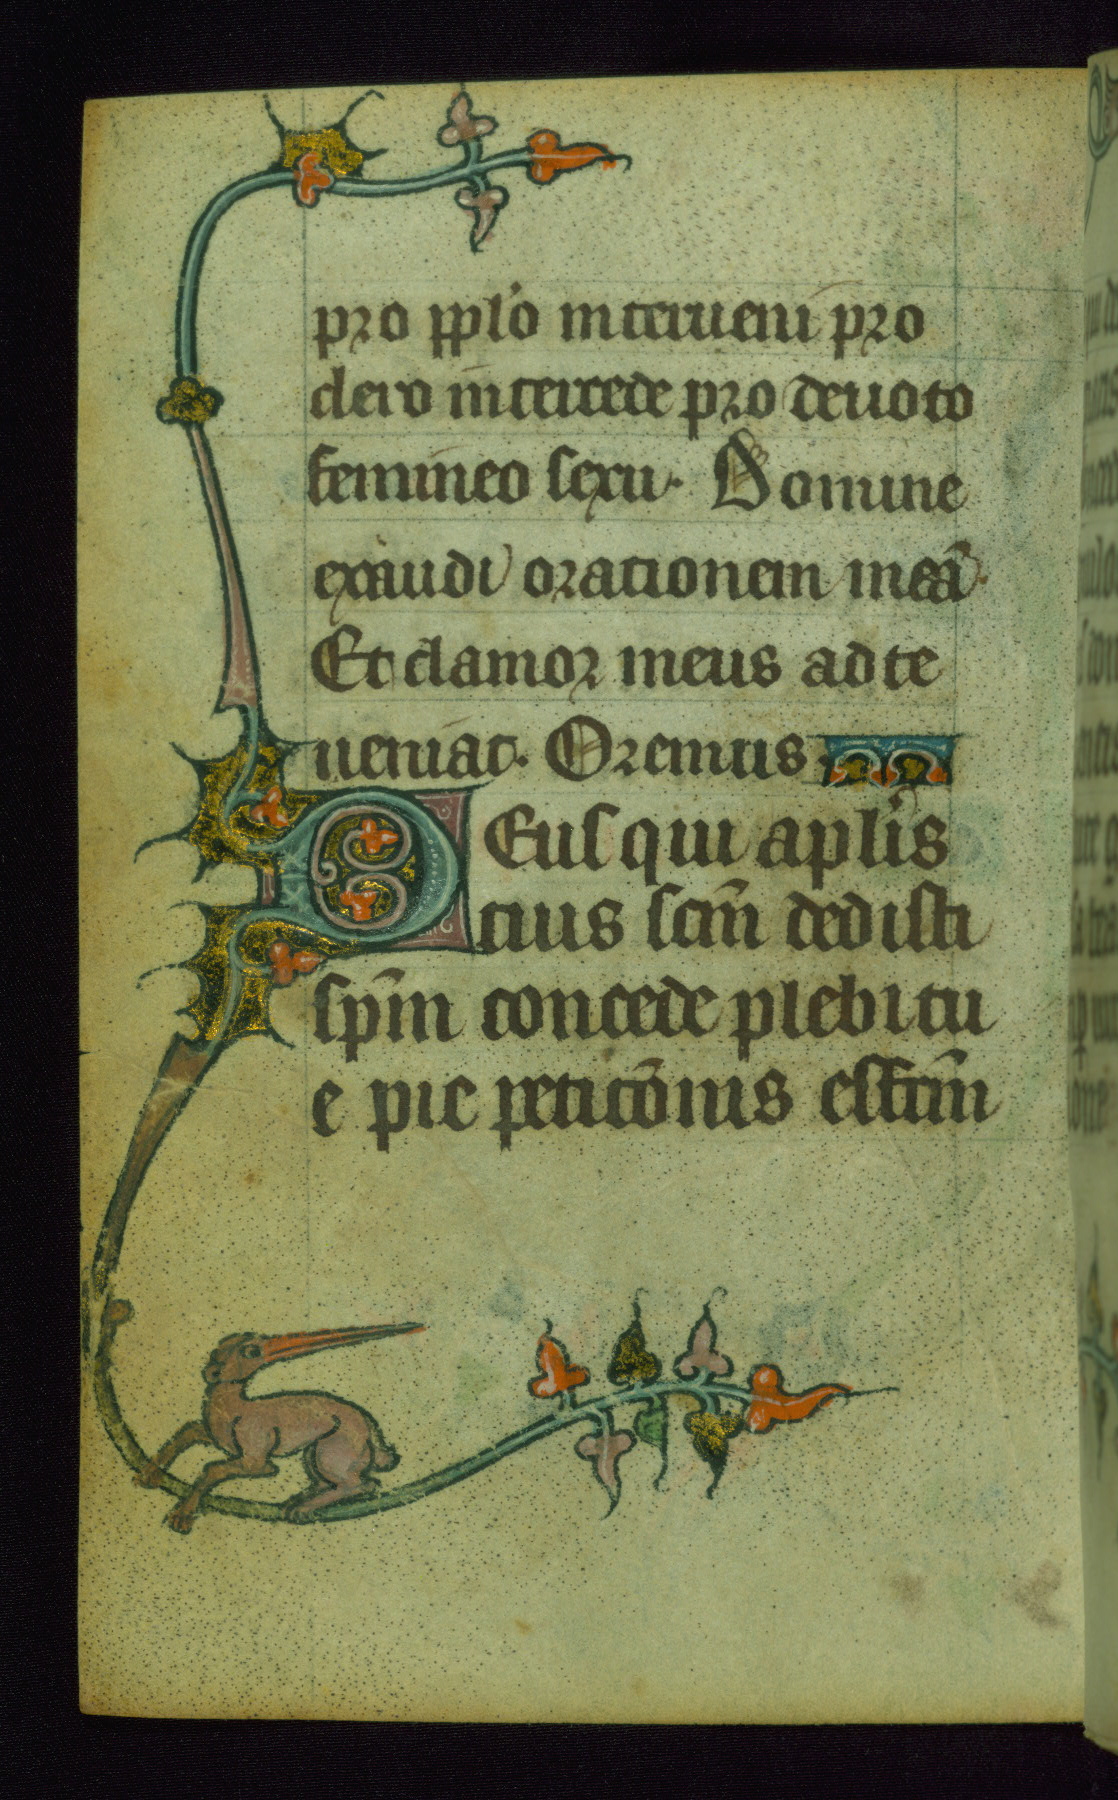 pro pplo interueni pro
clero intercede pro deuoto
femineo sexu. Domine
exaudi orationem meā.
Et clamor meus ad te
ueniat. Oremus
DEus qui aplis
tuis scm̄ dedisti
spm̄ concede plebi tu
e pie peticōnis effctm̄